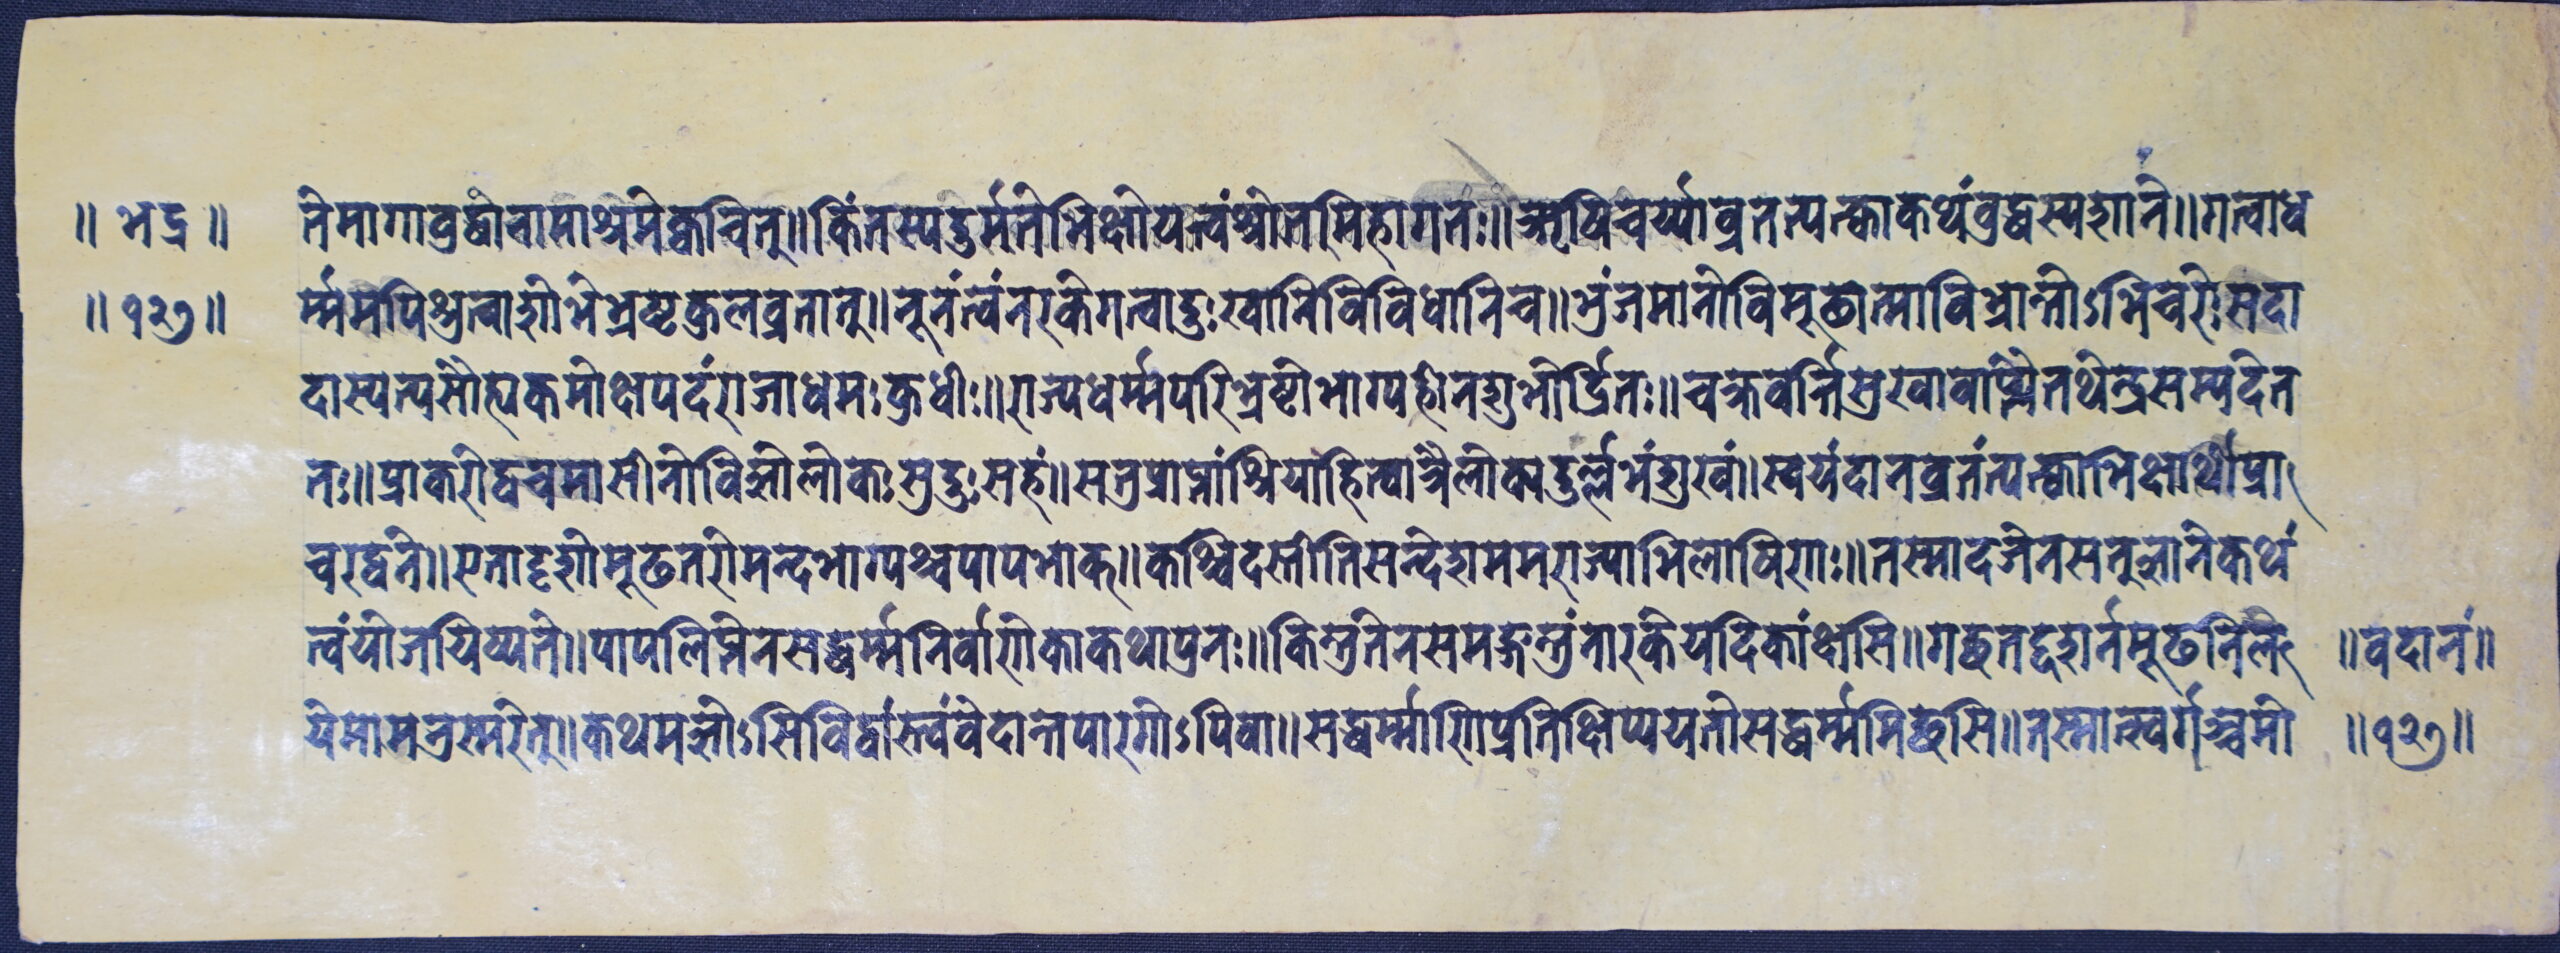 ॥ भद्र ॥ ते मा गा बुद्धो वामाश्रमे क्वचित् ॥ किं तस्य दुर्मते भिक्षो यत्त्वं श्रोतुमिहागतः ॥ ऋषिचर्य्याव्रतं त्यक्त्वा कथं बुद्धस्य शासने ॥ गत्वा ध
॥ १२७ ॥ र्म्ममपि श्रुत्वा शोभे भ्रष्टकुलव्रतात् ॥ नूनं त्वं नरके गत्वा दुःखानि विविधानि च ॥ भुंजमानो विमूढात्मा विभ्रान्तोऽभिचरेः सदा
दास्यत्यसौ ह्यकमोक्षपदं राजाधमः कुधीः ॥ राज्यधर्म्मपरिभ्रष्टो भाग्यहीनशुभोर्द्रितः ॥ चक्रवर्त्तिसुखावाप्त्यै तथेन्द्रसम्पदे त
तः ॥ प्राकरोद्धचमासीनो विज्ञो लोकः सुदुःसहं ॥ सतु प्राप्तां श्रियां हित्वा त्रैलोक्यदुर्ल्लभं शुखं ॥ स्वयं दानव्रतं त्यक्त्वा भिक्षार्थी प्रा
चरद्धने ॥ एतादृशो मूढतरो मन्दभाग्यश्च पापभाक् ॥ कश्चिदस्तीति सन्देशममराज्याभिलाषिणः ॥ तस्मादजेन सत्तुज्ञाने कथं
त्वं योजयिष्यते ॥ पापलिप्तेन सद्धर्म्मनिर्वाणे का कथा पुनः ॥ किन्तु तेन समङ्गन्तुं नारके यदि कांक्षसि ॥ गच्छ तद्दर्शने मूढ निलर् ॥ वदानं ॥
ये मामनुस्मरेत् ॥ कथमज्ञोऽसि विद्वांस्त्वं वेदान्तपारगोऽपि वा ॥ सद्धर्म्माणि प्रतिक्षिप्य यतो सद्धर्म्ममिच्छसि ॥ तस्मात्स्वर्गञ्चमो ॥ १२७ ॥